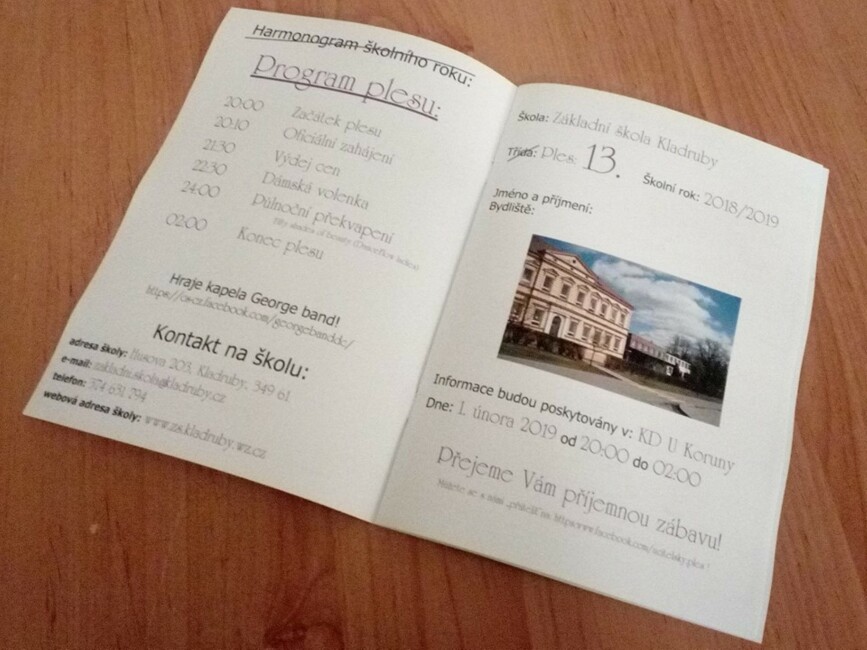 Harmonogram školního roku:
Program plesu:
20:00 Začátek plesu
20:10 Oficiální zahájení
21:30 Výdej cen
22:30 Dámská volenka
24:00 Půlnoční překvapení
02:00 Konec plesu
Hraje kapela George band!
https://cs-cz.facebook.com/georgebanddc/
Kontakt na školu:
adresa školy: Husova 203, Kladruby, 349 61
e-mail: zakladni.skola@kladruby.cz
telefon: 374 631 794
webová adresa školy: www.zskladruby.wz.cz
Škola: Základní škola Kladruby
Třída: Ples: 13.
Školní rok: 2018/2019
Jméno a příjmení:
Bydliště:
Informace budou poskytovány v: KD U Koruny
Dne: 1. února 2019 od 20:00 do 02:00
Přejeme Vám příjemnou zábavu!